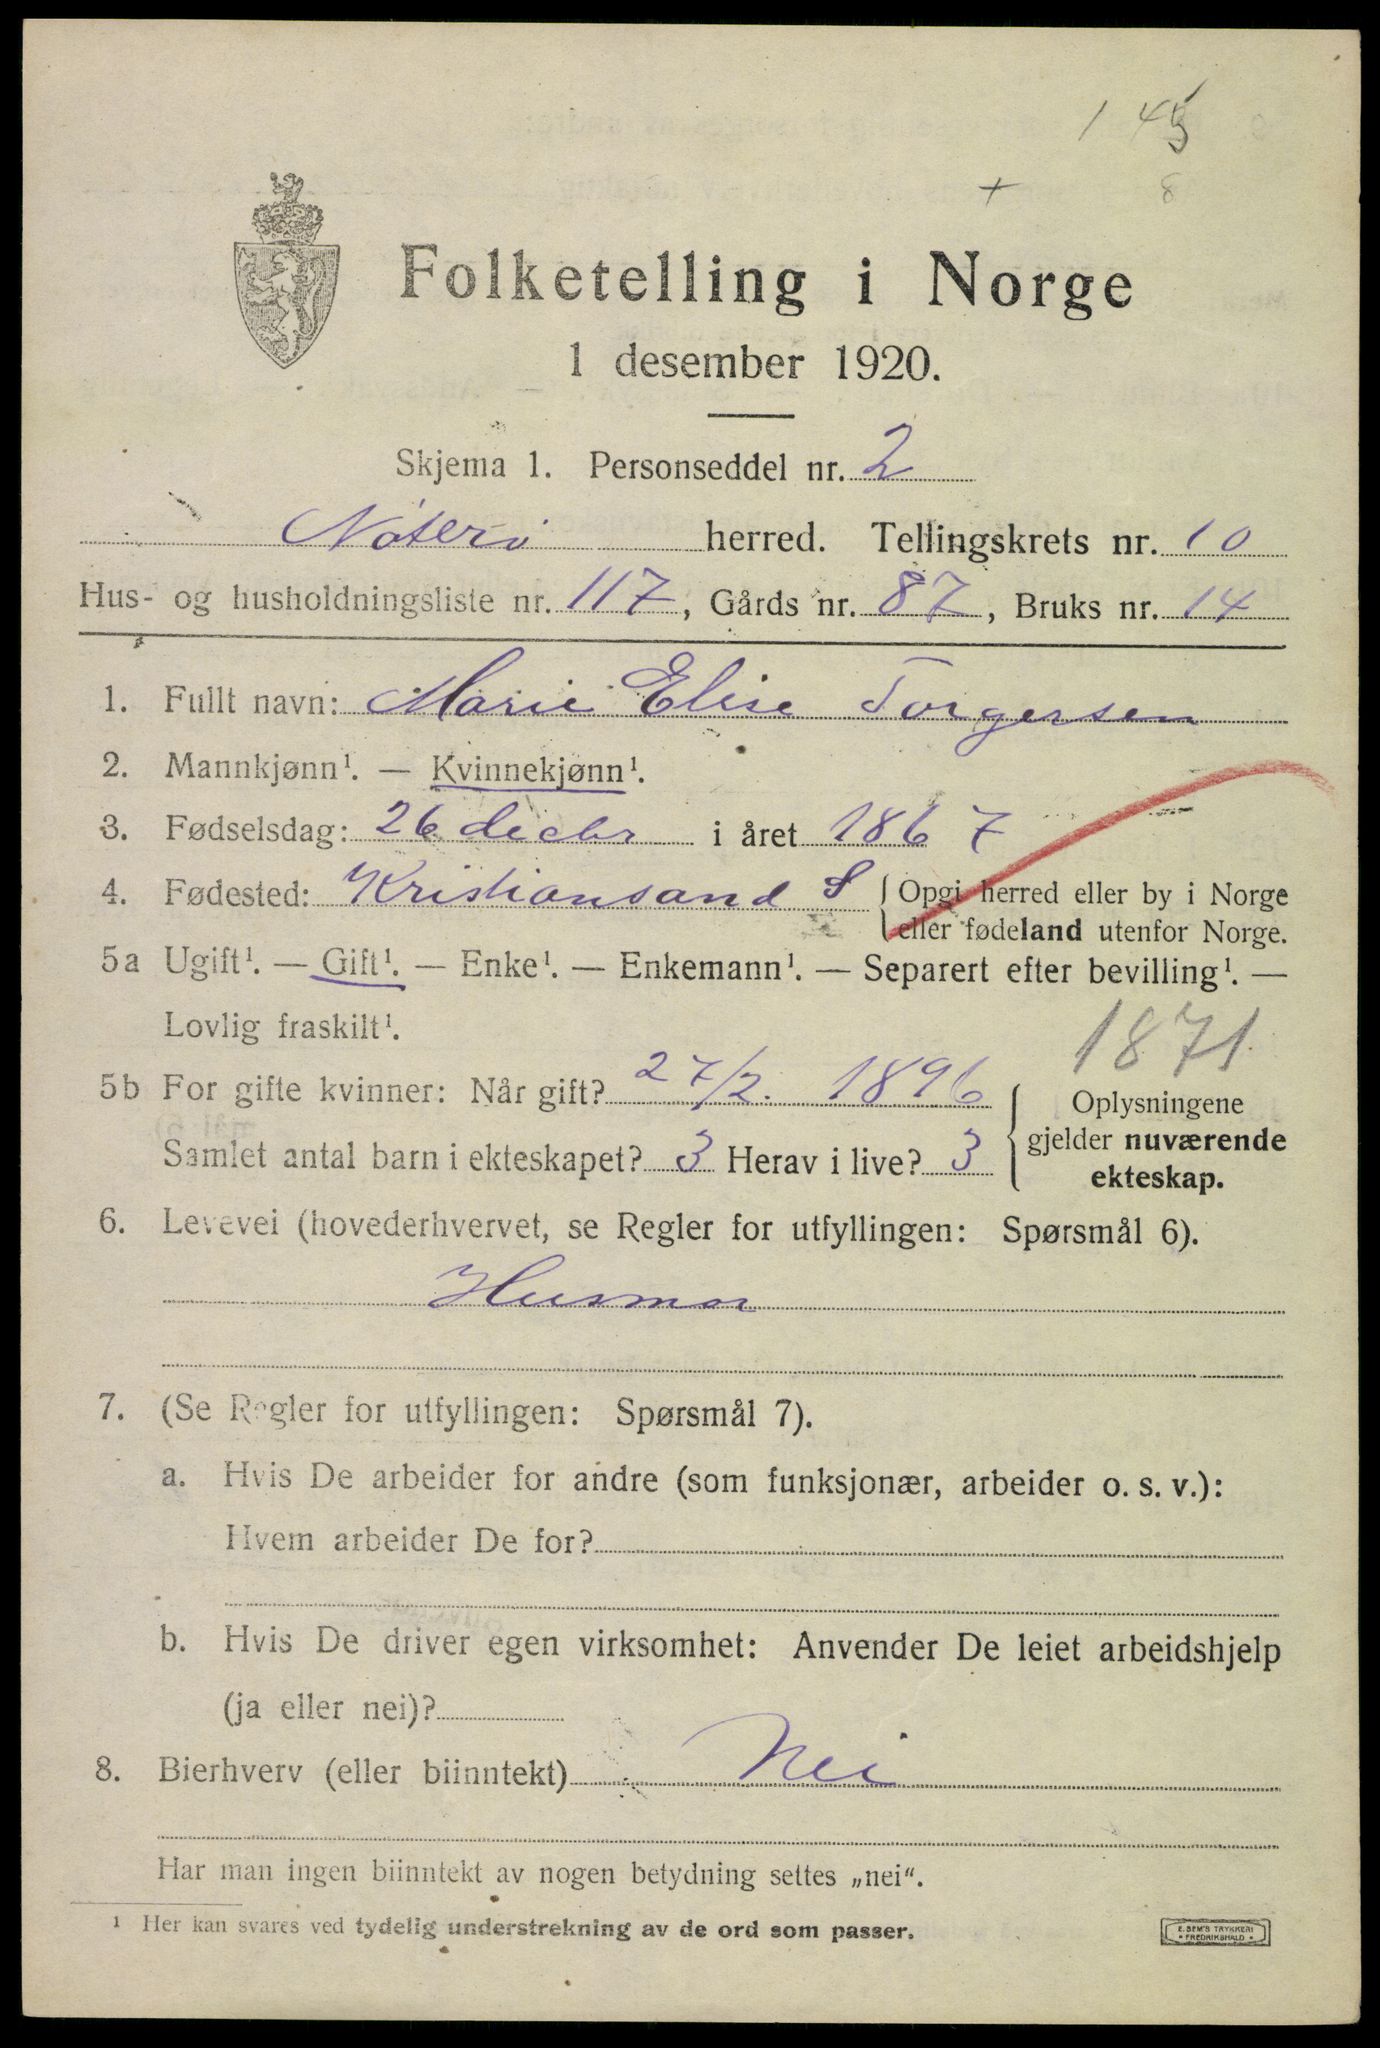 1 45
+ 8
Folketelling i Norge
1 desember 1920.
Skjema 1. Personseddel nr. 2
Nøterø herred. Tellingskrets nr. 10
Hus- og husholdningsliste nr. 117, Gårds nr. 87, Bruks nr. 14
1. Fullt navn: Marie Elise Torgersen
2. Mannkjønn¹. — Kvinnekjønn¹.
3. Fødselsdag: 26 decbr i året 1867
4. Fødested: Kristiansand S { Opgi herred eller by i Norge
eller fødeland utenfor Norge.
5a Ugift¹. — Gift¹. — Enke¹. — Enkemann¹. — Separert efter bevilling¹. —
Lovlig fraskilt¹.
1871
5b For gifte kvinner: Når gift? 27/2. 1896
Samlet antal barn i ekteskapet? 3 Herav i live? 3
{ Oplysningene
gjelder nuværende
ekteskap.
6. Levevei (hovederhvervet, se Regler for utfyllingen: Spørsmål 6).
Husmor
7. (Se Regler for utfyllingen: Spørsmål 7).
a. Hvis De arbeider for andre (som funksjonær, arbeider o. s. v.):
Hvem arbeider De for?
b. Hvis De driver egen virksomhet: Anvender De leiet arbeidshjelp
(ja eller nei)?
8. Bierhverv (eller biinntekt) Nei
Har man ingen biinntekt av nogen betydning settes „nei“.
¹ Her kan svares ved tydelig understrekning av de ord som passer.
E. SEM'S TRYKKERI
• FREDRIKSHALD •